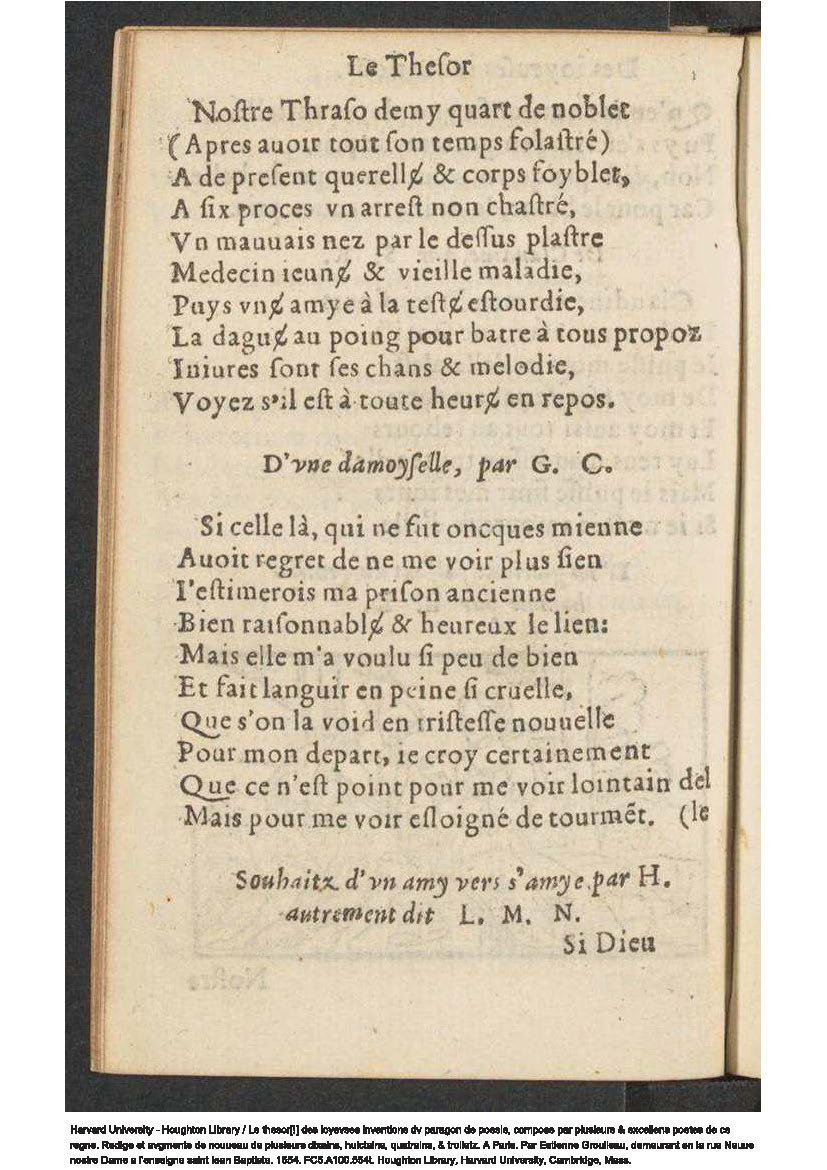 Le Theſor
Noſtre Thraſo demy quart de noblet
(Apres auoir tout ſon temps folaſtré)
A de preſent querellɇ & corps foyblet,
A ſix proces vn arreſt non chaſtré,
Vn mauuais nez par le deſſus plaſtre
Medecin ieunɇ & vieille maladie,
Puys vnɇ amye à la teſtɇ eſtourdie,
La daguɇ au poing pour batre à tous propoz
Iniures ſont ſes chans & melodie,
Voyez s'il eſt à toute heurɇ en repos.
D'vne damoyſelle, par G. C.
Si celle là, qui ne fut oncques mienne
Auoit regret de ne me voir plus ſien
I'eſtimerois ma priſon ancienne
Bien raiſonnablɇ & heureux le lien:
Mais elle m'a voulu ſi peu de bien
Et fait languir en peine ſi cruelle,
Que s'on la void en triſteſſe nouuelle
Pour mon depart, ie croy certainement
Que ce n'eſt point pour me voir lointain del
Mais pour me voir eſloigné de tourmẽt. (le
Souhaitz d'vn amy vers s'amye par H.
autrement dit L. M. N.
Si Dieu
Harvard University - Houghton Library / Le thesor[!] des ioyevses inventions dv paragon de poesie, compose par plusieurs & excellens poetes de ce
regne. Redige et avgmente de nouueau de plusieurs dixains, huictains, quatrains, & trolletz. A Paris. Par Estienne Groulleau, demeurant en la rue Neuue
nostre Dame a l'enseigne saint Iean Baptiste. 1554. FC5.A100.554t. Houghton Library, Harvard University, Cambridge, Mass.